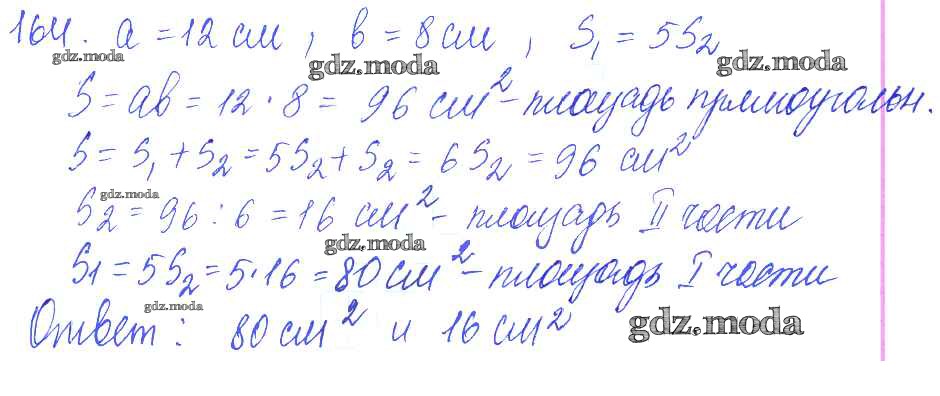 164. a = 12 см, b = 8 см, S₁ = 5S₂
gdz.moda gdz.moda gdz.moda
S = ab = 12 · 8 = 96 см² – площадь прямоугольн.
S = S₁ + S₂ = 5S₂ + S₂ = 6S₂ = 96 см²
gdz.moda
S₂ = 96 : 6 = 16 см² – площадь II части
gdz.moda
S₁ = 5S₂ = 5 · 16 = 80 см² – площадь I части
gdz.moda
Ответ: 80 см² и 16 см²
gdz.moda